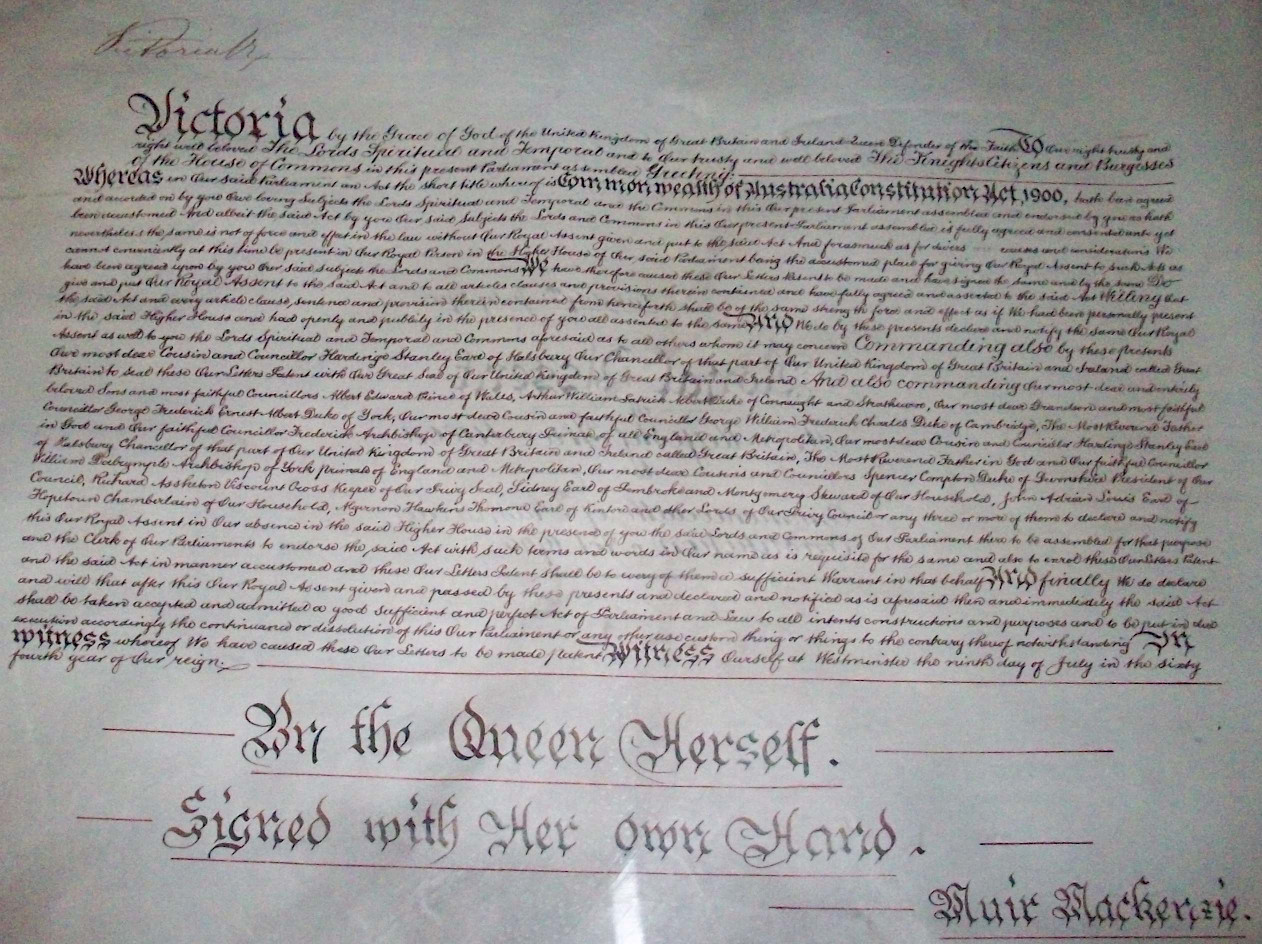 Victoria R
Victoria by the Grace of God of the United Kingdom of Great Britain and Ireland Queen Defender of the Faith To Our right trusty and
right well beloved The Lords Spiritual and Temporal and to Our trusty and well beloved The Knights Citizens and Burgesses
of the House of Commons in this present Parliament assembled Greeting:
Whereas in Our said Parliament an Act the short title whereof is Commonwealth of Australia Constitution Act, 1900, hath been agreed
and accorded on by you Our loving Subjects the Lords Spiritual and Temporal and the Commons in this Our present Parliament assembled and endorsed by you as hath
been accustomed And albeit the said Act by you Our said Subjects the Lords and Commons in this Our present Parliament assembled is fully agreed and consented unto yet
nevertheless the same is not of force and effect in the law without Our Royal Assent given and put to the said Act And forasmuch as for divers causes and considerations We
cannot conveniently at this time be present in Our Royal Person in the Higher House of Our said Parliament being the accustomed place for giving Our Royal Assent to such Acts as
have been agreed upon by you Our said subjects the Lords and Commons We have therefore caused these Our Letters Patent to be made and have signed the same and by the same Do
give and put Our Royal Assent to the said Act and to all articles clauses and provisions therein contained and have fully agreed and assented to the said Act Willing that
the said Act and every article clause, sentence and provision therein contained from henceforth shall be of the same strength force and effect as if We had been personally present
in the said Higher House and had openly and publicly in the presence of you all assented to the same And We do by these presents declare and notify the same Our Royal
Assent as well to you the Lords Spiritual and Temporal and Commons aforesaid as to all others whom it may concern Commanding also by these presents
Our most dear Cousin and Councillor Hardinge Stanley Earl of Halsbury Our Chancellor of that part of Our United Kingdom of Great Britain and Ireland called Great
Britain to seal these Our Letters Patent with Our Great Seal of Our United Kingdom of Great Britain and Ireland And also commanding Our most dear and entirely
beloved Sons and most faithful Councillors Albert Edward Prince of Wales, Arthur William Patrick Albert Duke of Connaught and Strathearn, Our most dear Grandson and most faithful
Councillor George Frederick Ernest Albert Duke of York, Our most dear Cousin and faithful Councillor George William Frederick Charles Duke of Cambridge, The Most Reverend Father
in God and Our faithful Councillor Frederick Archbishop of Canterbury Primate of all England and Metropolitan, Our most dear Cousin and Councillor Hardinge Stanley Earl
of Halsbury Chancellor of that part of Our United Kingdom of Great Britain and Ireland called Great Britain, The Most Reverend Father in God and Our faithful Councillor
William Dalrymple Archbishop of York Primate of England and Metropolitan, Our most dear Cousins and Councillors Spencer Compton Duke of Devonshire President of Our
Council, Richard Assheton Viscount Cross Keeper of Our Privy Seal, Sidney Earl of Pembroke and Montgomery Steward of Our Household, John Adrian Louis Earl of
Hopetoun Chamberlain of Our Household, Algernon Hawkins Thomond Earl of Kintore and other Lords of Our Privy Council or any three or more of them to declare and notify
this Our Royal Assent in Our absence in the said Higher House in the presence of you the said Lords and Commons of Our Parliament there to be assembled for that purpose
and the Clerk of Our Parliaments to endorse the said Act with such terms and words in Our name as is requisite for the same and also to enrol these Our Letters Patent
and the said Act in manner accustomed and these Our Letters Patent shall be to every of them a sufficient Warrant in that behalf And finally We do declare
and will that after this Our Royal Assent given and passed by these presents and declared and notified as is aforesaid then and immediately the said Act
shall be taken accepted and admitted a good sufficient and perfect Act of Parliament and Law to all intents constructions and purposes and to be put in due
execution accordingly the continuance or dissolution of this Our Parliament or any other use custom thing or things to the contrary thereof notwithstanding In
witness whereof We have caused these Our Letters to be made patent Witness Ourself at Westminster the ninth day of July in the sixty
fourth year of Our reign.
By the Queen Herself.
Signed with Her own Hand.
Muir Mackenzie.